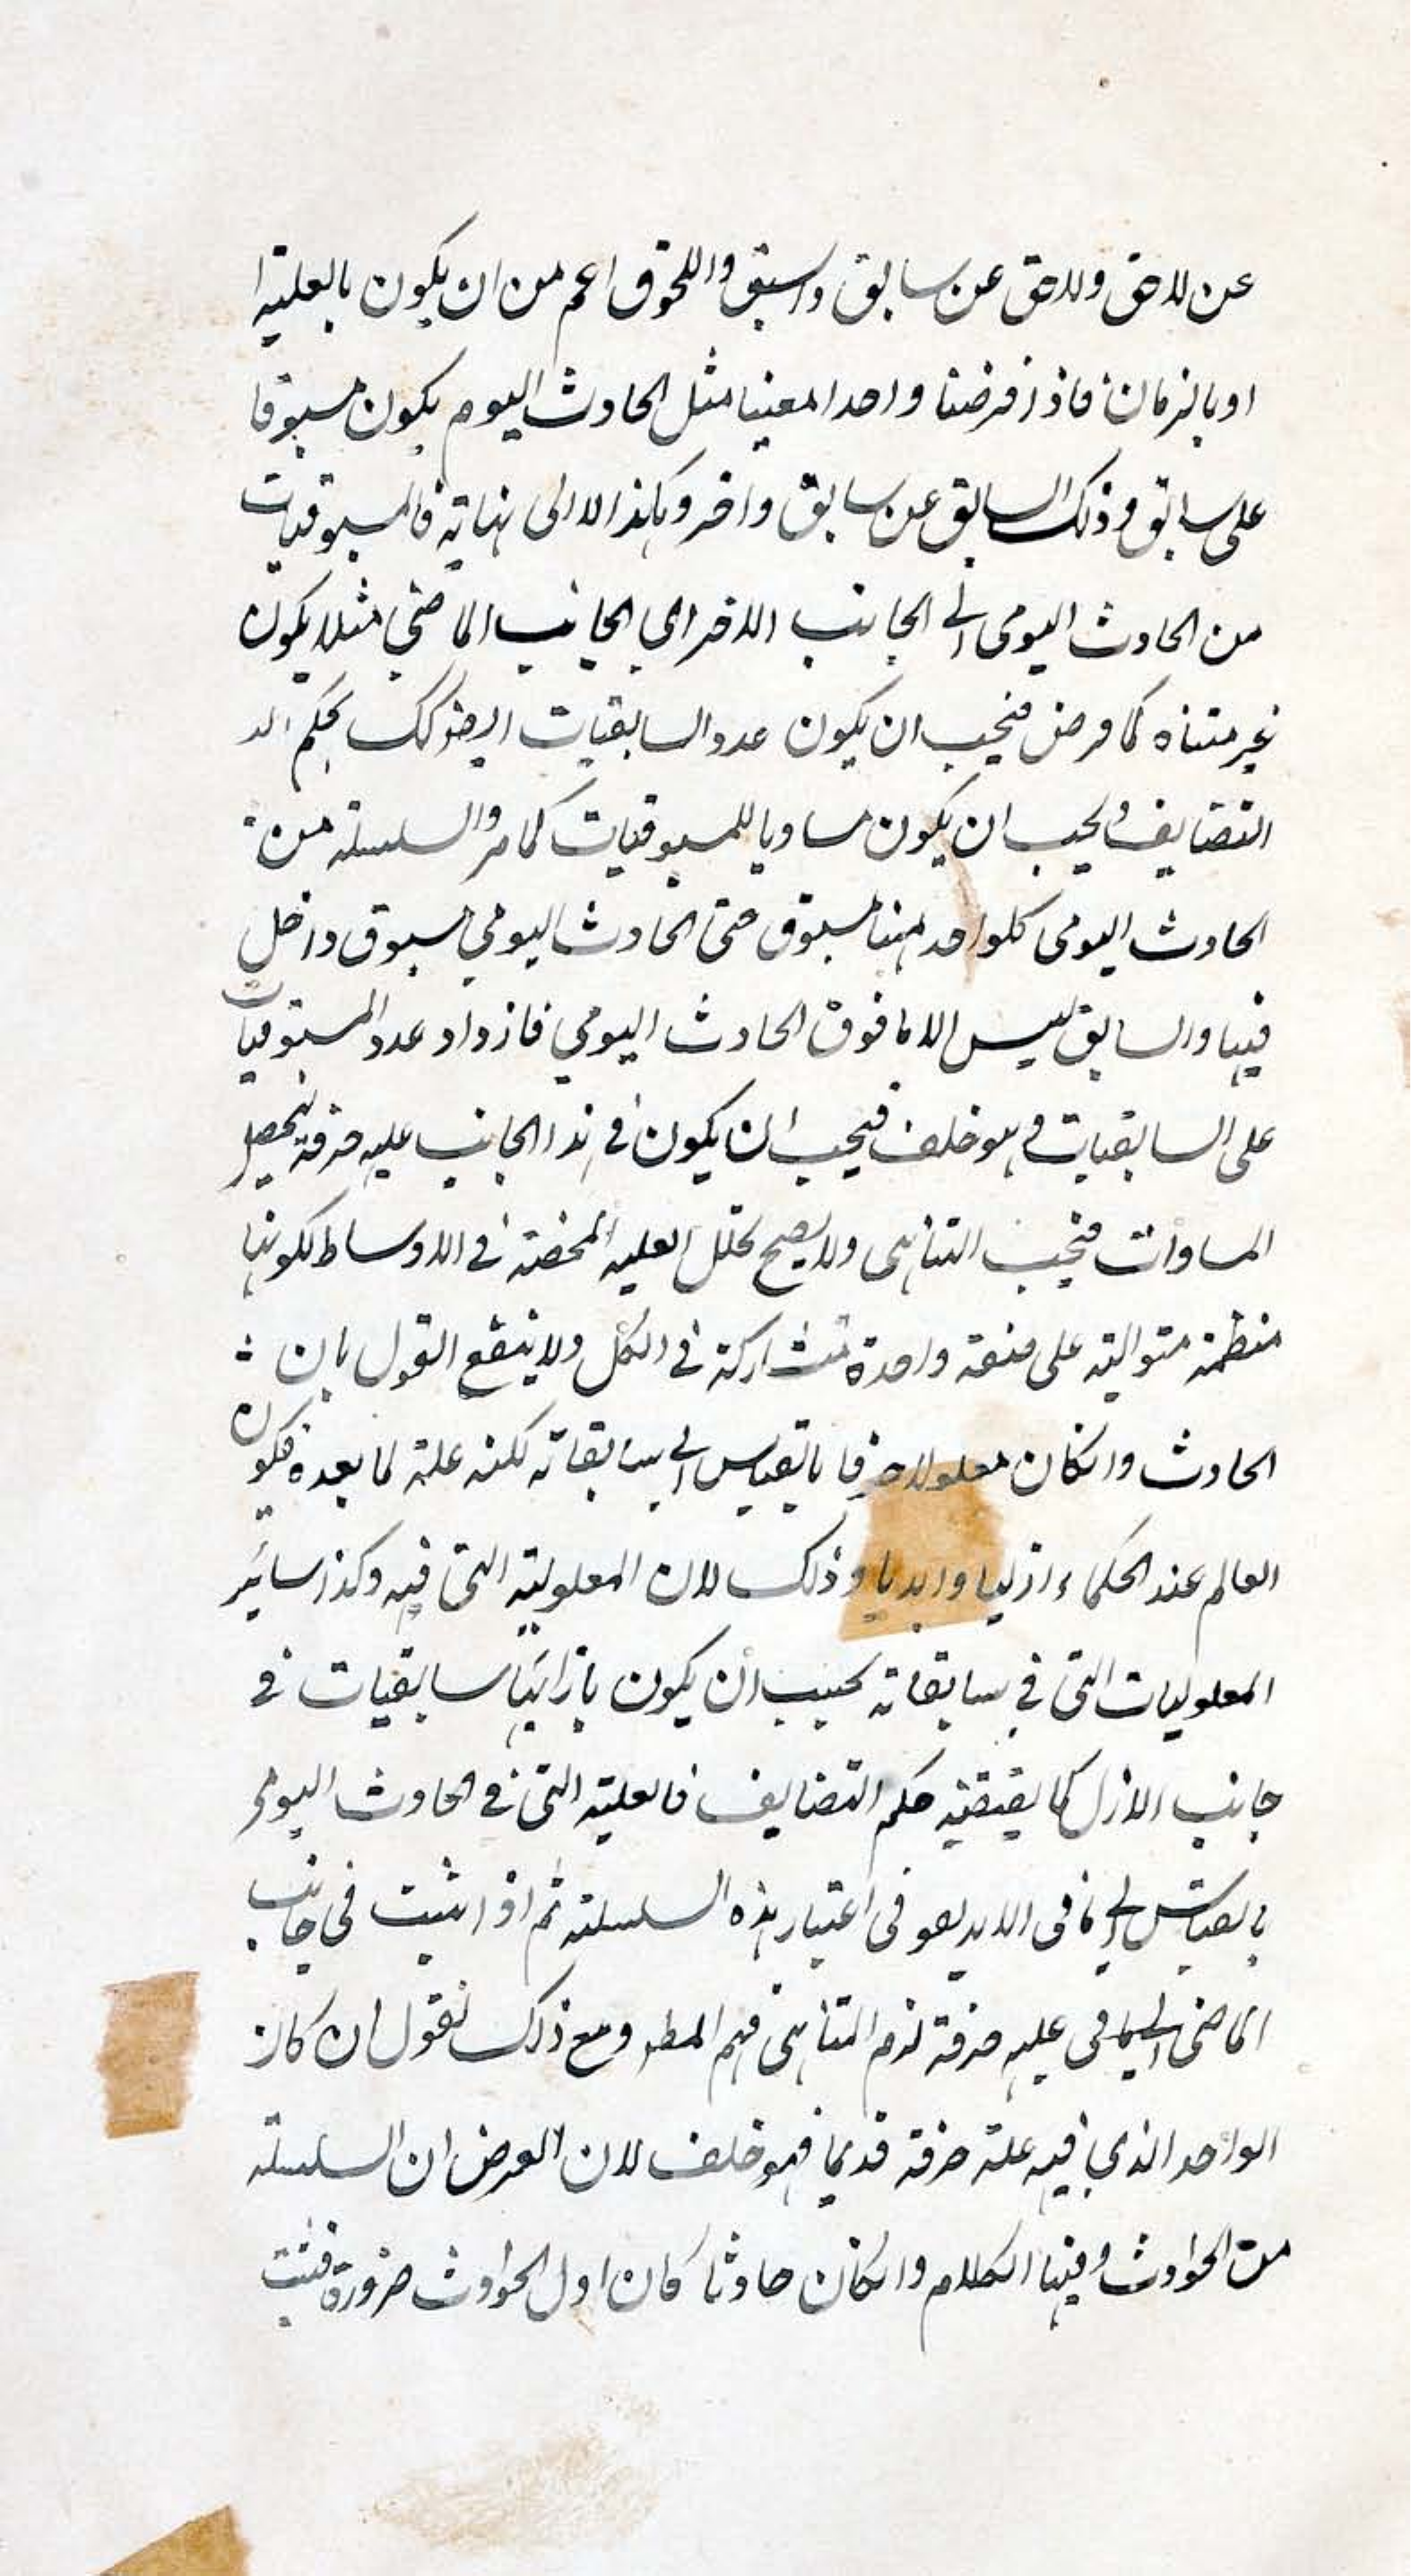 عن لاحق ولاحق عن سابق والسبق واللحوق اعم من ان يكون بالعلية ا
او بالزمان فاذا فرضنا واحدا معينا مثل الحادث اليوم يكون مسبوقا
على سابق وذلك السابق عن سابق واخر وهكذا لا الى نهاية فالمسبوقيات
من الحادث اليومى الى الجانب الاخر اي الجانب الماضي مثلا يكون
غير متناه كما فرض فيجب ان يكون عدد السابقيات ايضا كك بحكم الـ
التضايف ويجب ان يكون مساويا للمسبوقيات كما مر والسلسلة من
الحادث اليومى كلواحد منها مسبوق حتى الحادث اليومي مسبوق داخل
فيها والسابق ليس الا ما فوق الحادث اليومي فازداد عدد المسبوقيات
على السابقيات وهو خلف فيجب ان يكون في هذا الجانب علية صرفة ليحصل
المساوات فيجب التناهى ولا يصح تحلل العلية المحضة في الاوساط لكونها
منظمة متوالية على صفة واحدة متشاركة في الكل ولا ينفع القول بان
الحادث وانكان معلولا صرفا بالقياس الى سابقاته لكنه علة لما بعده فيكون
العالم عند الحكماء ازليا وابديا وذلك لان المعلولية التى فيه وكذا سائر
المعلوليات التى في سابقاته يجب ان يكون بازائها سابقيات في
جانب الازل كما يقتضيه حكم التضايف فالعلية التى في الحادث اليومى
بالقياس الى ما فى الابد لغو فى اعتبار هذه السلسلة ثم اذا ثبت فى جانب
الماضى الى ما فى علية صرفة لزم التناهى فهم المطر ومع ذلك نقول ان كان
الواحد الذي فيه علة صرفة قديما فهو خلف لان الفرض ان السلسلة
من الحوادث وفيها الكلام وانكان حادثا كان اول الحوادث ضرورة فثبت